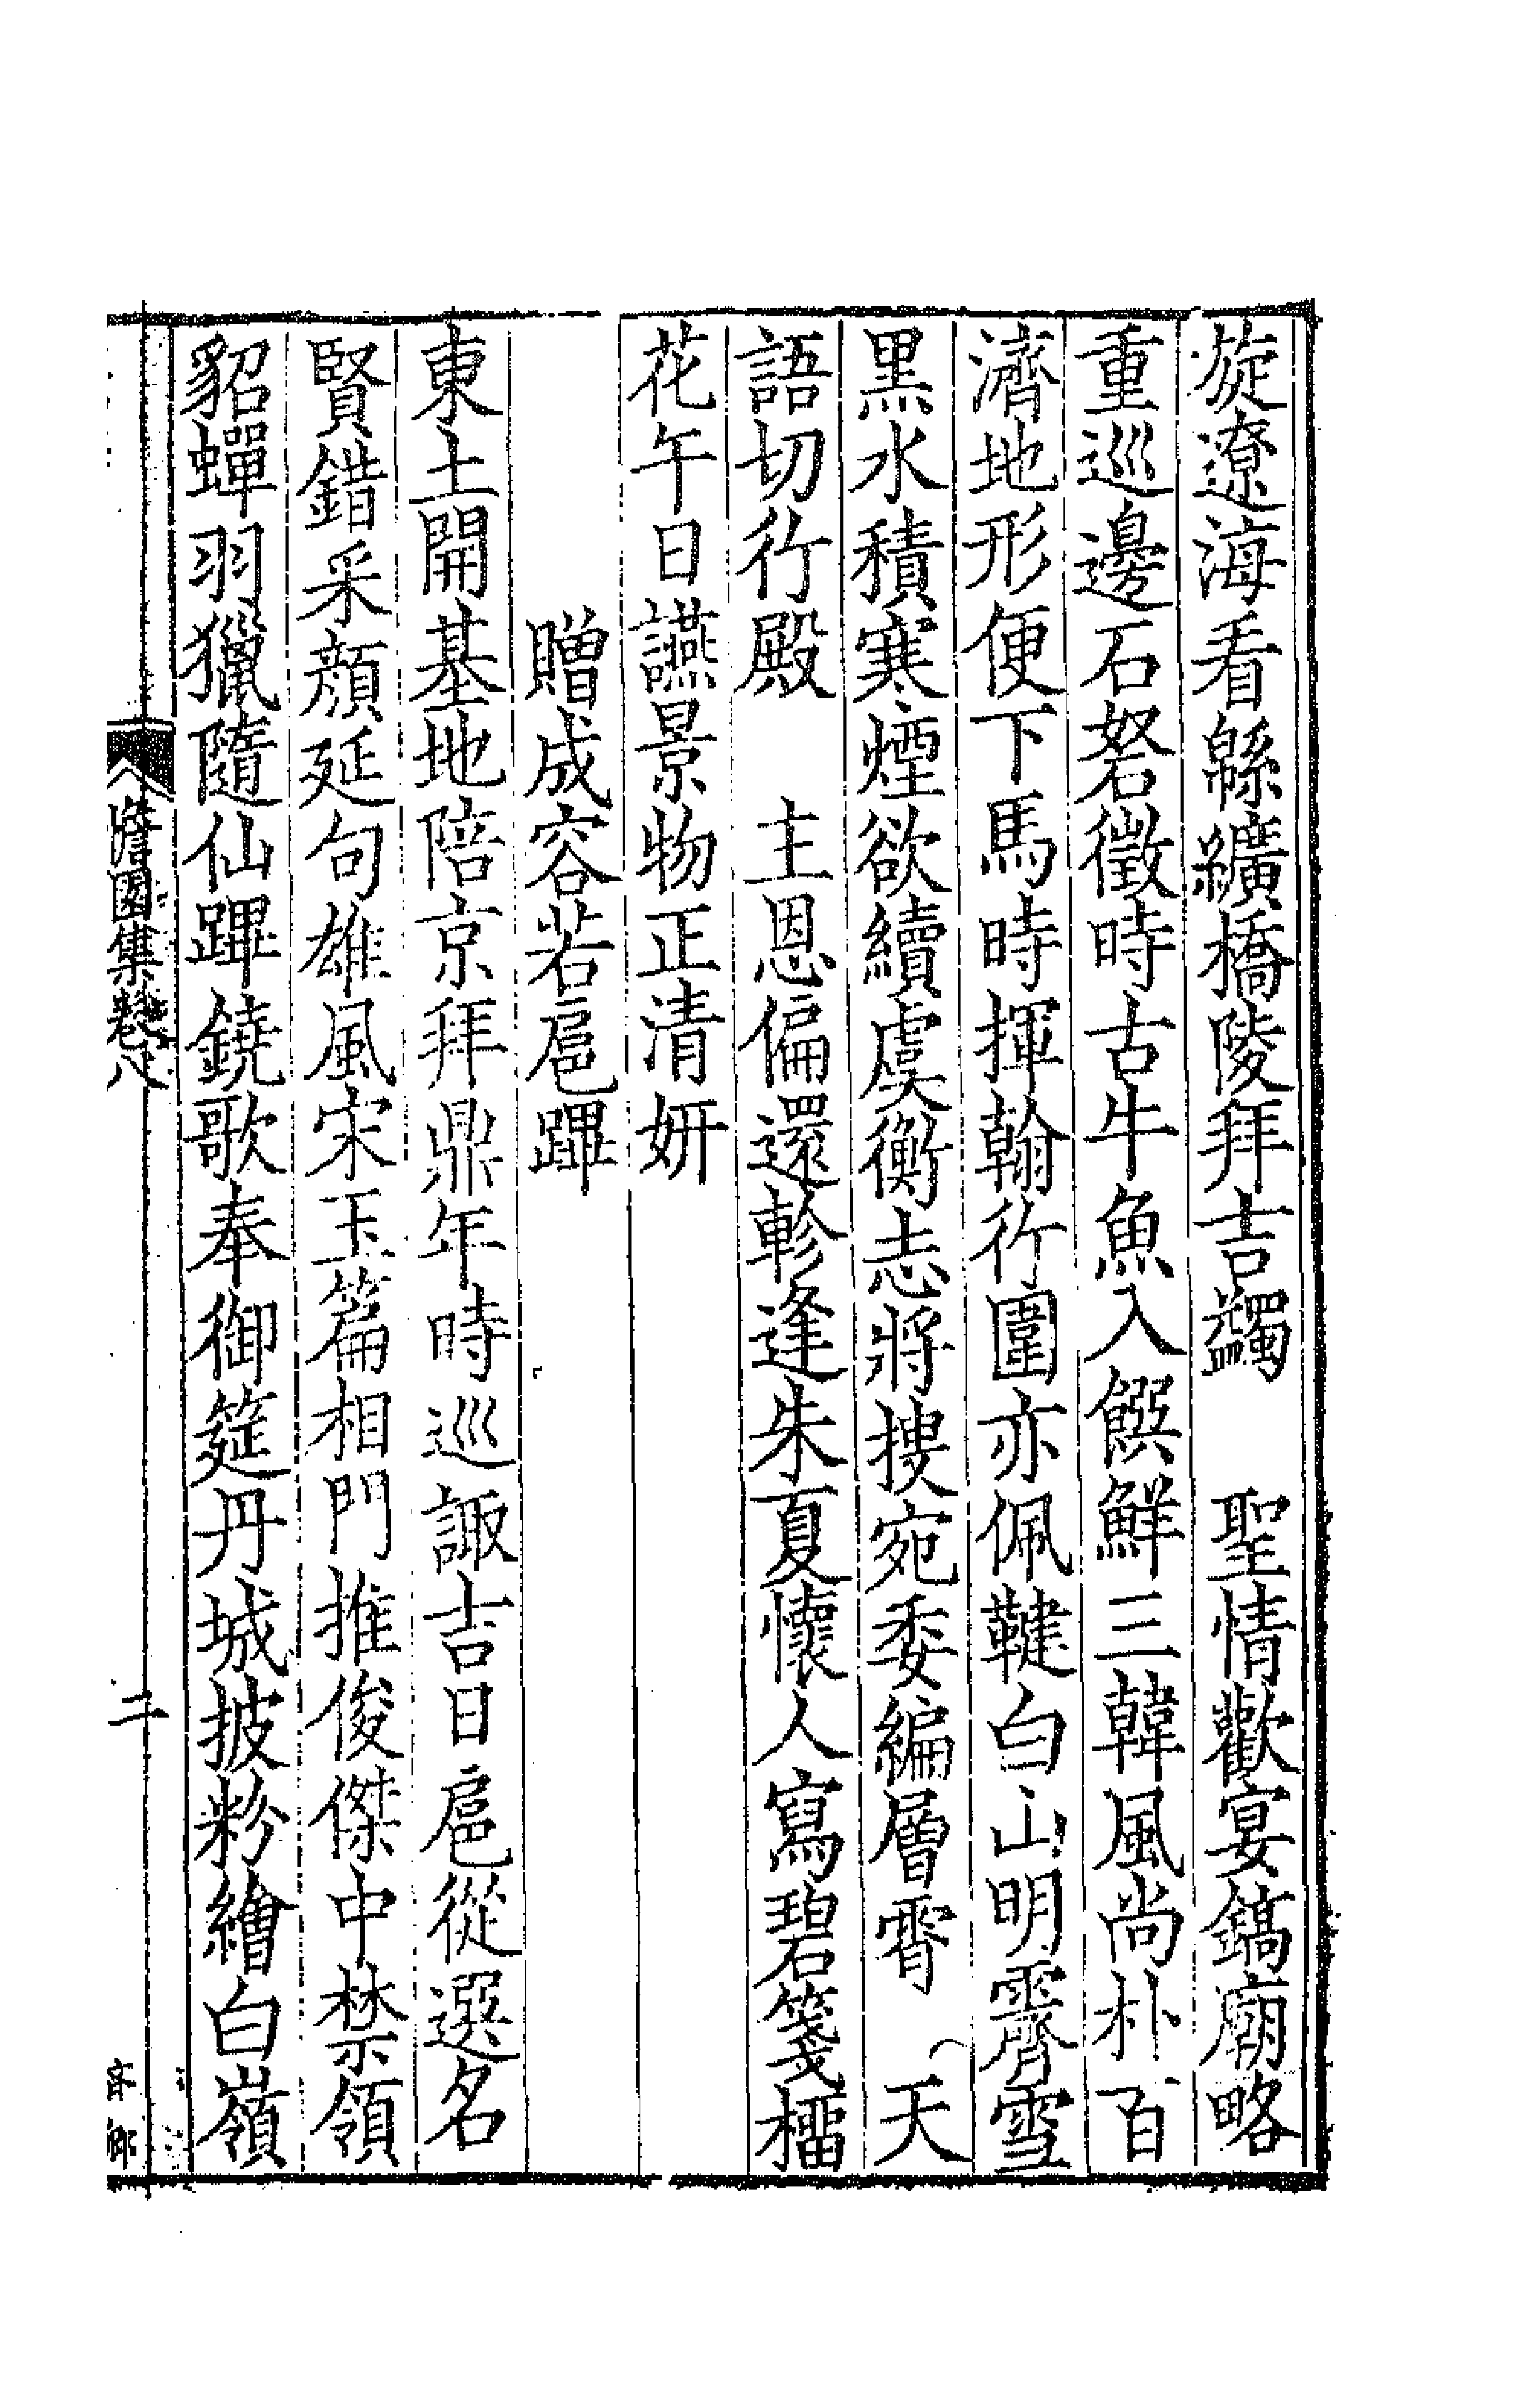 旋遼海看緜纊橋陵拜吉蠲　聖情歡宴鎬廟略
重巡邊石砮徵時古牛魚入饌鮮三韓風尚朴百
濟地形便下馬時揮翰行圍亦佩鞬白山明霽雪
黑水積寒煙欲續虞衡志將搜宛委編層霄　天
語切行殿　主恩偏還軫逢朱夏懷人寫碧箋榴
花午日讌景物正清妍
贈成容若扈蹕
東土開基地陪京拜鼎年時巡諏吉日扈從選名
賢錯采顏延句雄風宋玉篇相門推俊傑中禁領
貂蟬羽獵隨仙蹕鐃歌奉御筵丹城披粉繪白嶺
憺園集卷八
二